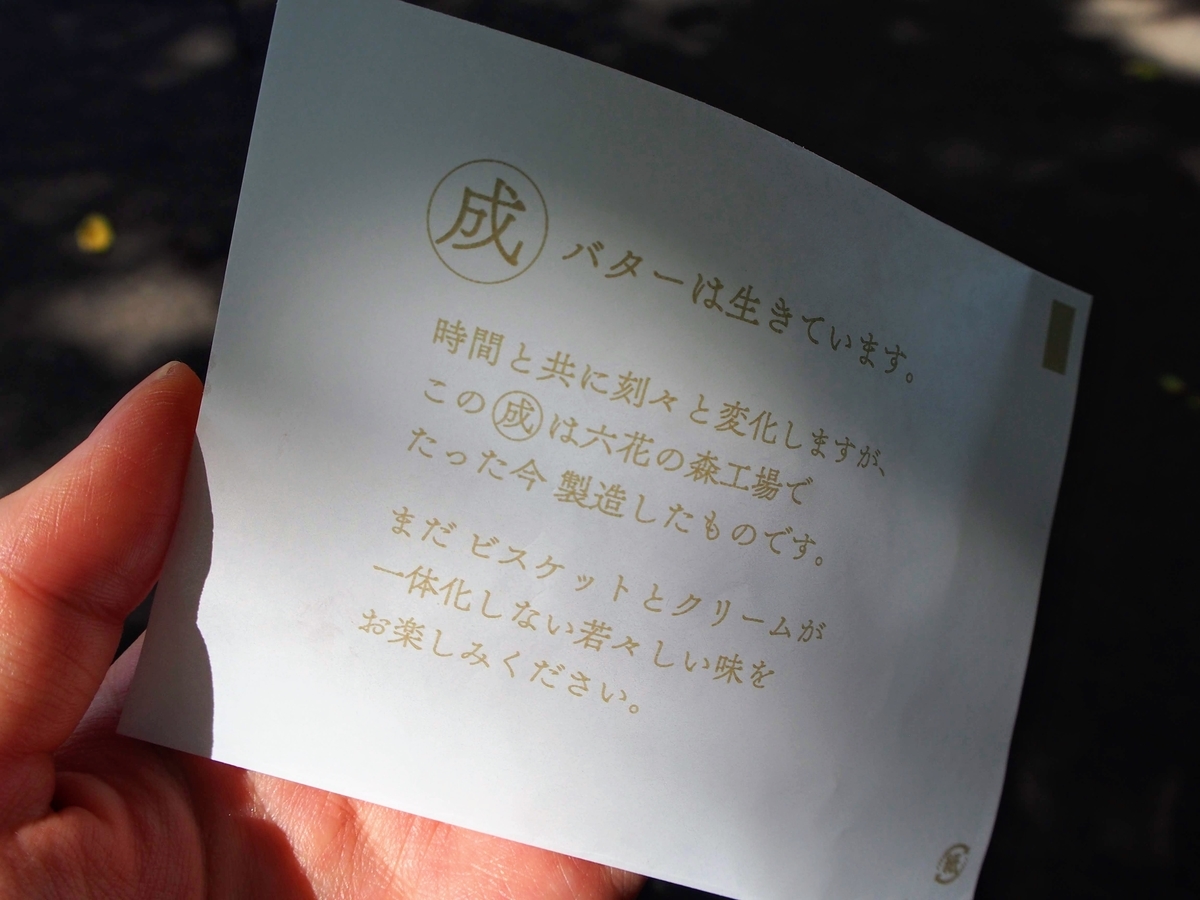 成 バターは生きています。
時間と共に刻々と変化しますが、
この成は六花の森工場で
たった今 製造したものです。
まだ ビスケットとクリームが
一体化しない若々しい味を
お楽しみください。
紙